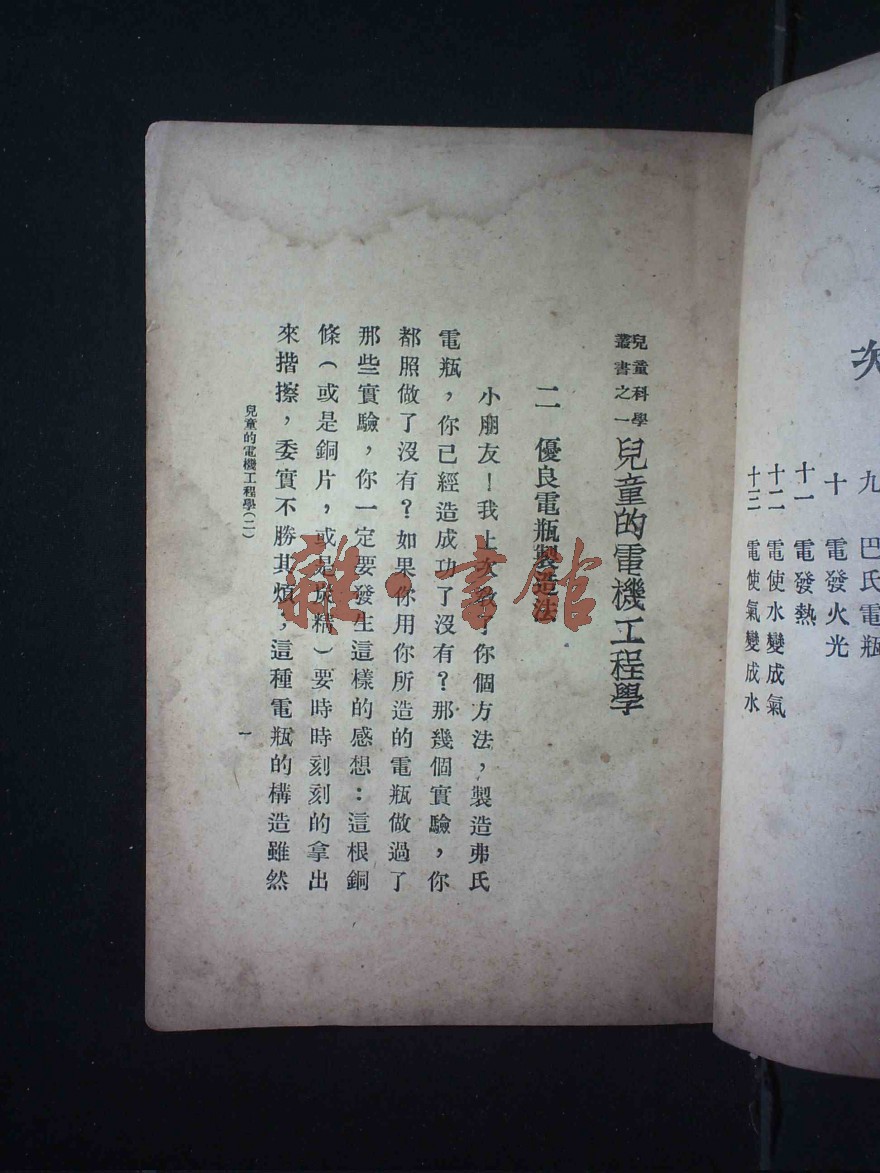 次
九　巴氏電瓶
十　電發火光
十一　電發熱
十二　電使水變成氣
十三　電使氣變成水
兒童科學叢書之一
兒童的電機工程學
二　優良電瓶製造法
小朋友！我上次教了你個方法，製造弗氏
電瓶，你已經造成功了沒有？那幾個實驗，你
都照做了沒有？如果你用你所造的電瓶做過了
那些實驗，你一定要發生這樣的感想：這根銅
條（或是銅片，或是炭精）要時時刻刻的拿出
來揩擦，委實不勝其煩；這種電瓶的構造雖然
兒童的電機工程學（二）
一
雜·書館